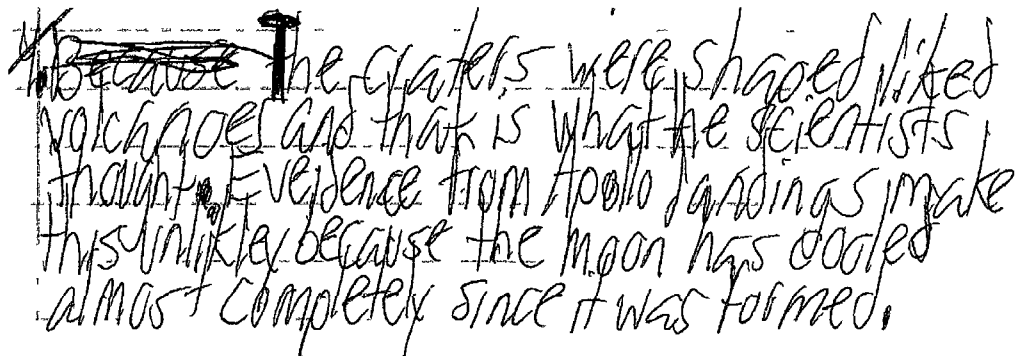 The craters were shaped liked
volcanoes and that is what the scientists
thought. Evedence from Apollo landings make
this unlikley because the moon has cooled
almost completely since it was formed.